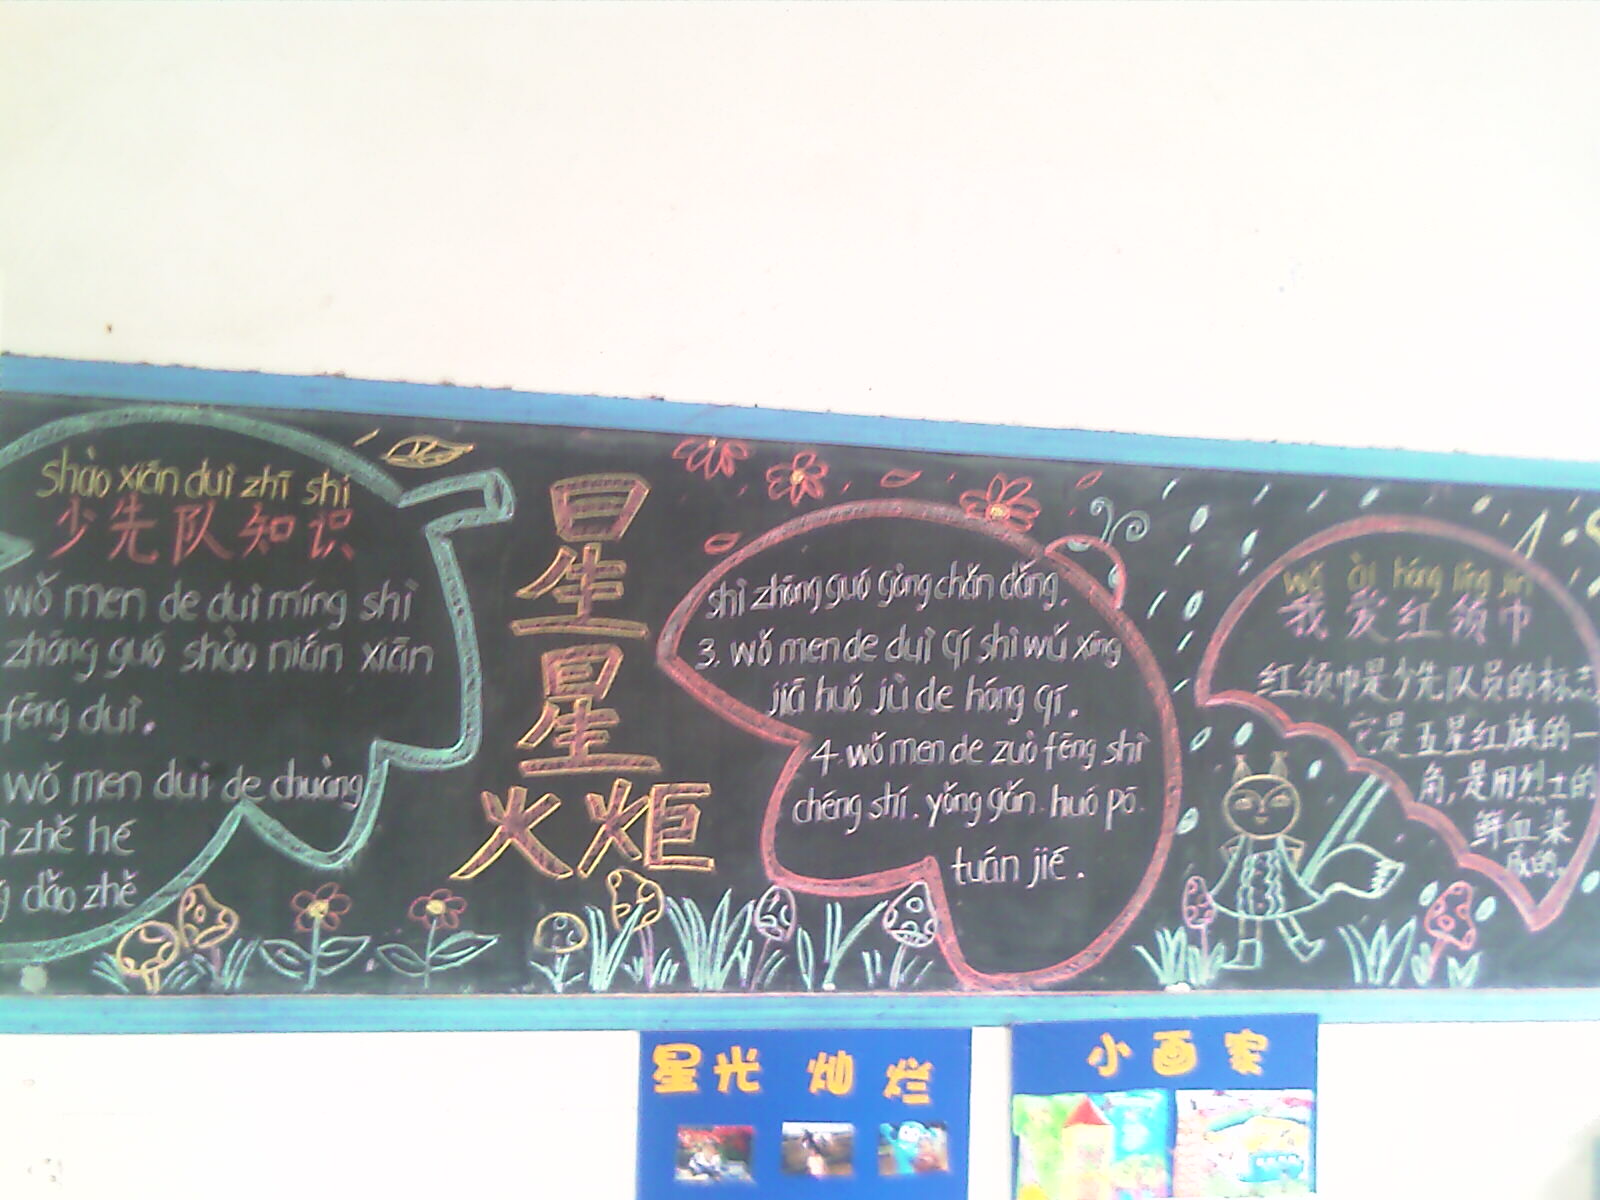 shào xiān duì zhī shi
少先队知识
wǒ men de duì míng shì
zhōng guó shào nián xiān
fēng duì.
wǒ men duì de chuàng
zhě hé
dǎo zhě
星星
火炬
shì zhōng guó gòng chǎn dǎng.
3. wǒ men de duì qí shì wǔ xīng
jiā huǒ jù de hóng qí.
4. wǒ men de zuò fēng shì
chéng shí. yǒng gǎn. huó pō.
tuán jié.
wǒ ài hóng lǐng jīn
我爱红领巾
红领巾是少先队员的标志
它是五星红旗的一
角,是用烈士的
鲜血染
成的。
星光灿烂
小画家